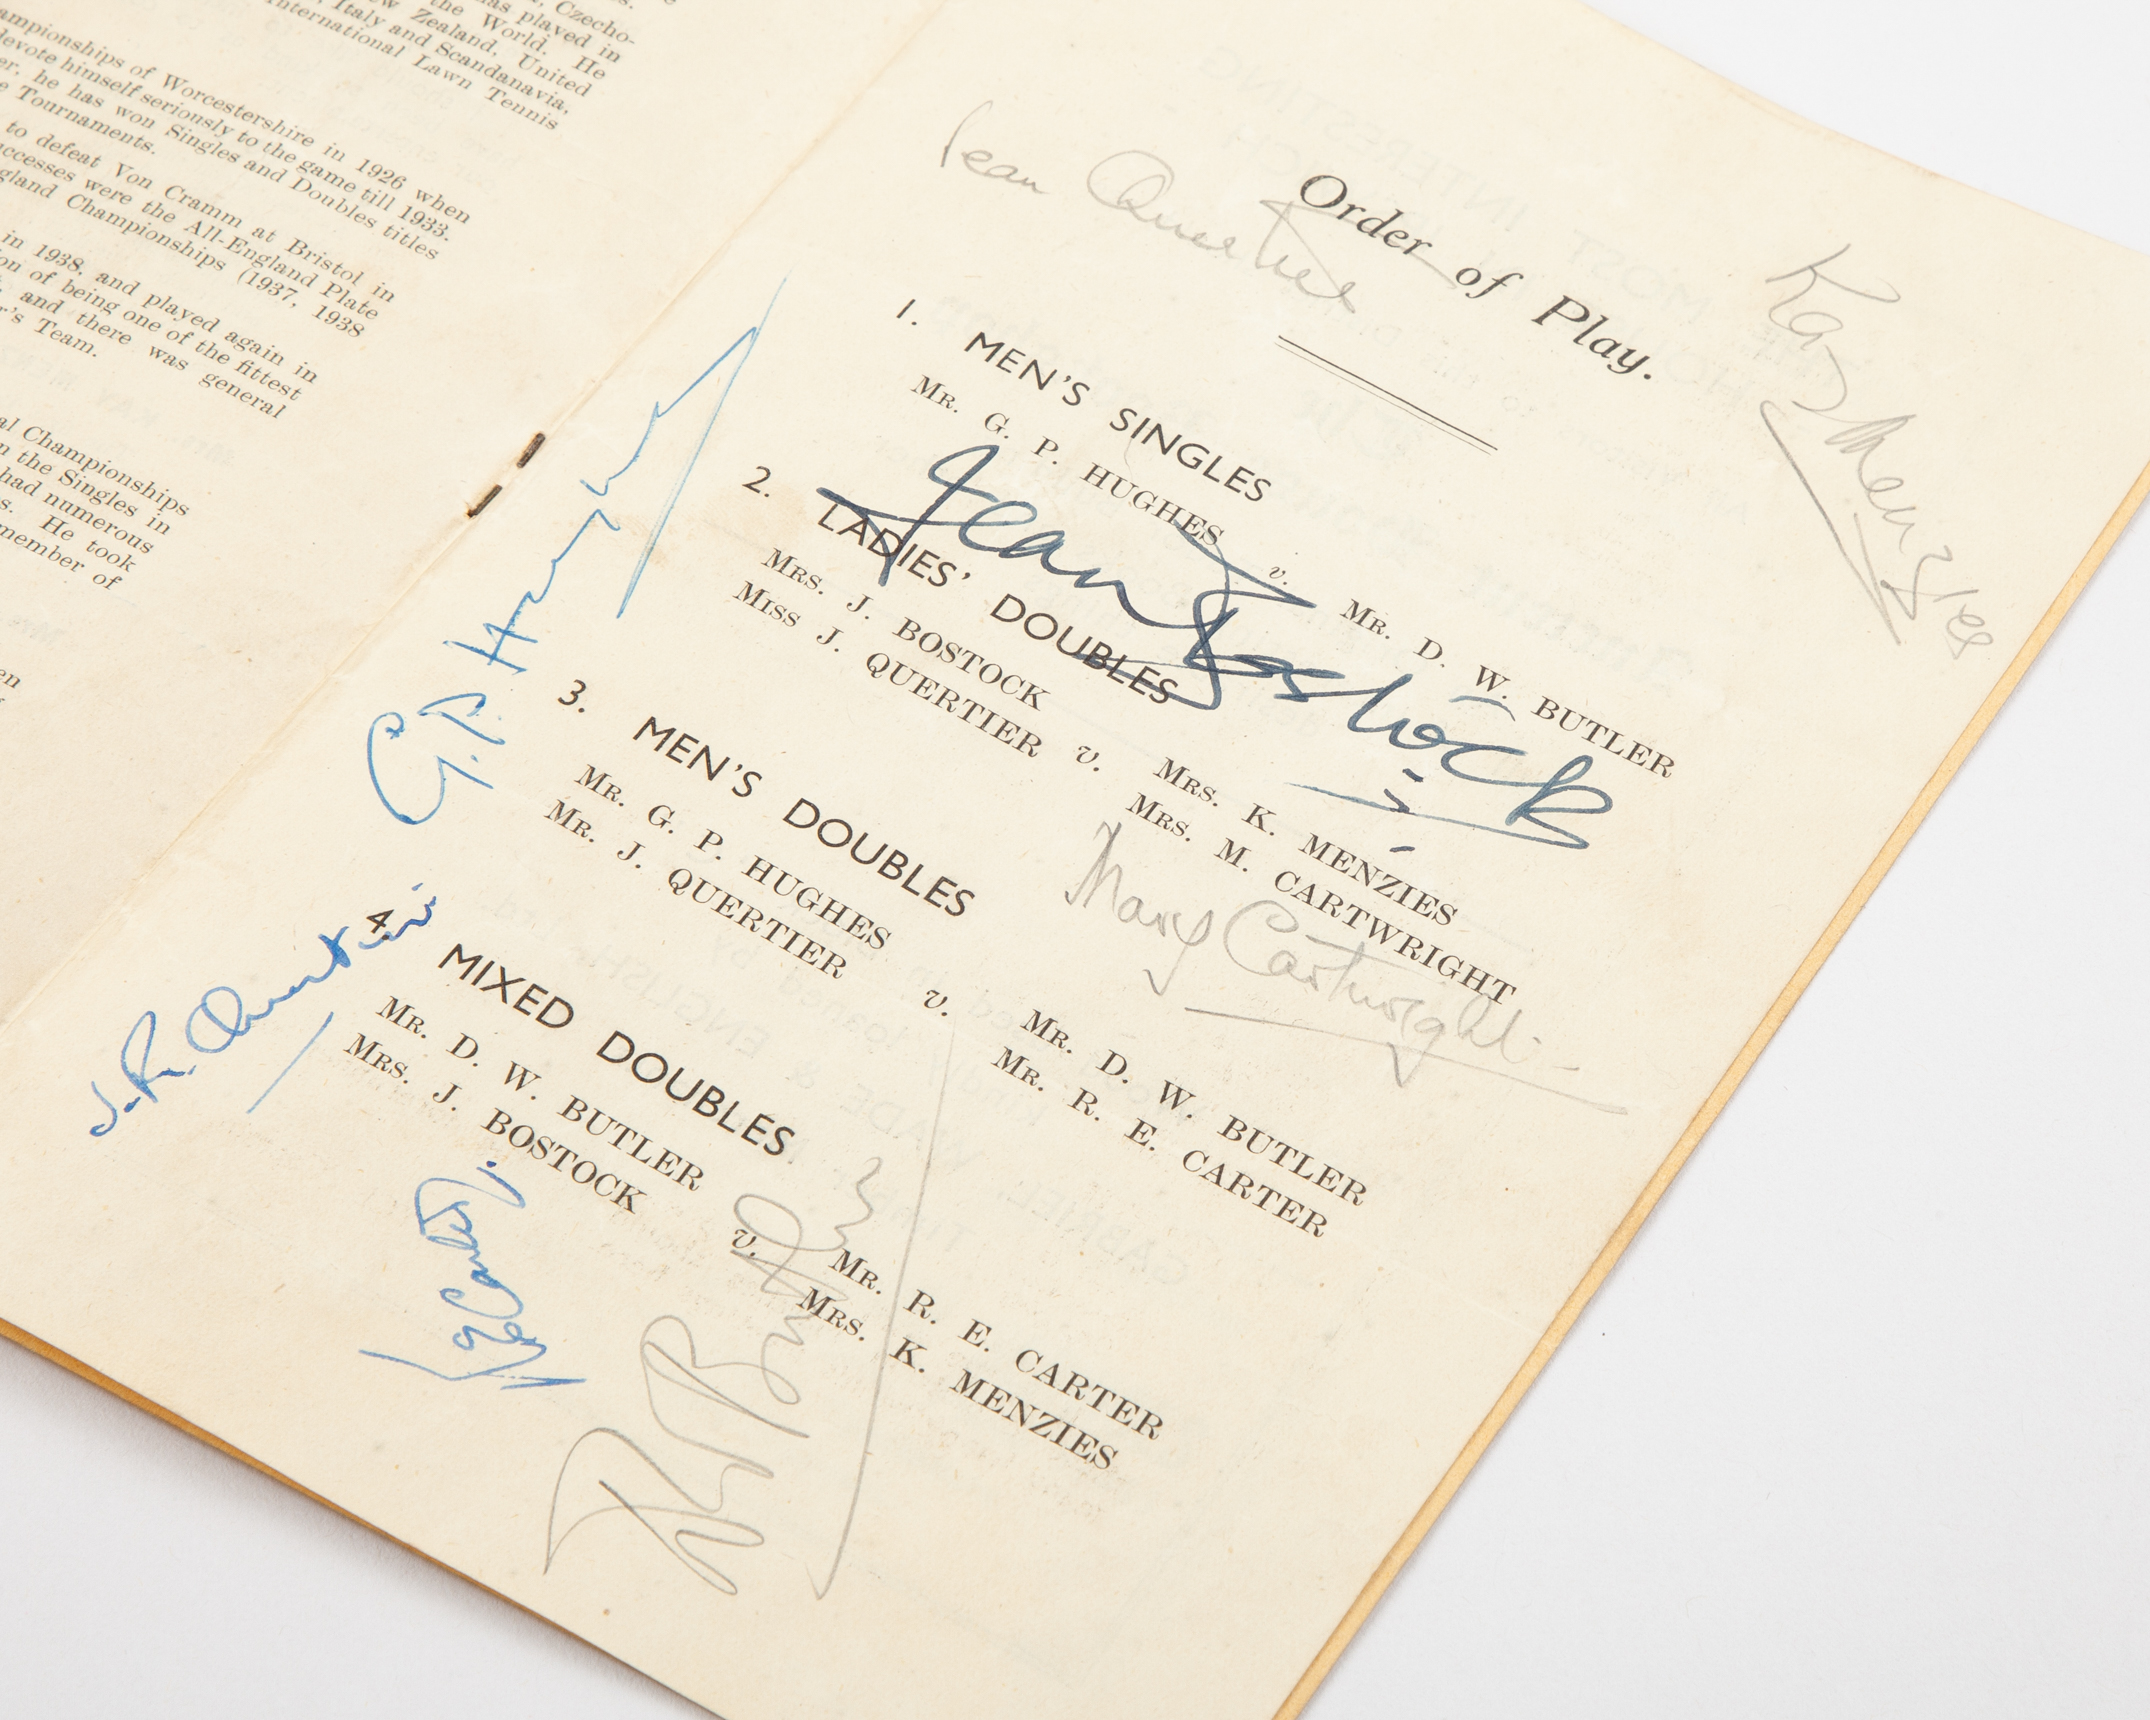 Czecho-
has played in
the World. He
New Zealand, United
Italy and Scandanavia,
International Lawn Tennis
Championships of Worcestershire in 1926 when
devote himself seriously to the game till 1933.
he has won Singles and Doubles titles
Tournaments.
to defeat Von Cramm at Bristol in
successes were the All-England Plate
England Championships (1937, 1938
in 1938, and played again in
of being one of the fittest
and there was general
Team.
Championships
in the Singles in
had numerous
He took
member of
Order of Play.
Jean Quertier
Kay Menzies
1. MEN'S SINGLES
MR. G. P. HUGHES v. MR. D. W. BUTLER
Jean Bostock
2. LADIES' DOUBLES
MRS. J. BOSTOCK
MISS J. QUERTIER v. MRS. K. MENZIES
MRS. M. CARTWRIGHT
Mary Cartwright
G. P. Hughes
3. MEN'S DOUBLES
MR. G. P. HUGHES
MR. J. QUERTIER v. MR. D. W. BUTLER
MR. R. E. CARTER
J. R. Quertier
4. MIXED DOUBLES
MR. D. W. BUTLER
MRS. J. BOSTOCK v. MR. R. E. CARTER
MRS. K. MENZIES
R E Carter
D W Butler